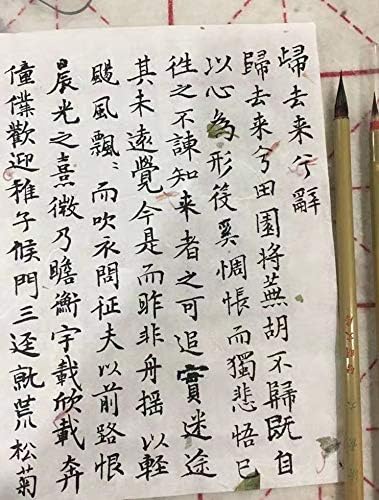 歸去来兮辭
歸去来兮田園將蕪胡不歸既自
以心為形役奚惆悵而獨悲悟已
往之不諫知来者之可追實迷途
其未遠覺今是而昨非舟摇以輕
颺風飄〻而吹衣問征夫以前路恨
晨光之熹微乃瞻衡宇載欣載奔
僮僕歡迎稚子候門三逕就荒松菊